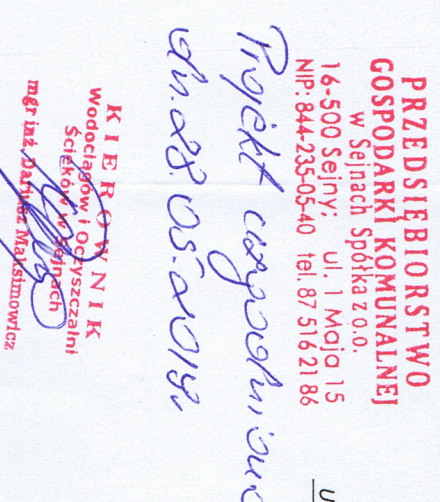 PRZEDSIĘBIORSTWO
GOSPODARKI KOMUNALNEJ
w Sejnach Spółka z o.o.
16-500 Sejny; ul. 1 Maja 15
NIP: 844-235-05-40 tel. 87 516 21 86
Projekt uzgodniono
dn. 28.05.2019r.
KIEROWNIK
Wodociągów i Oczyszczalni
Ścieków w Sejnach
mgr inż. Dariusz Maksimowicz